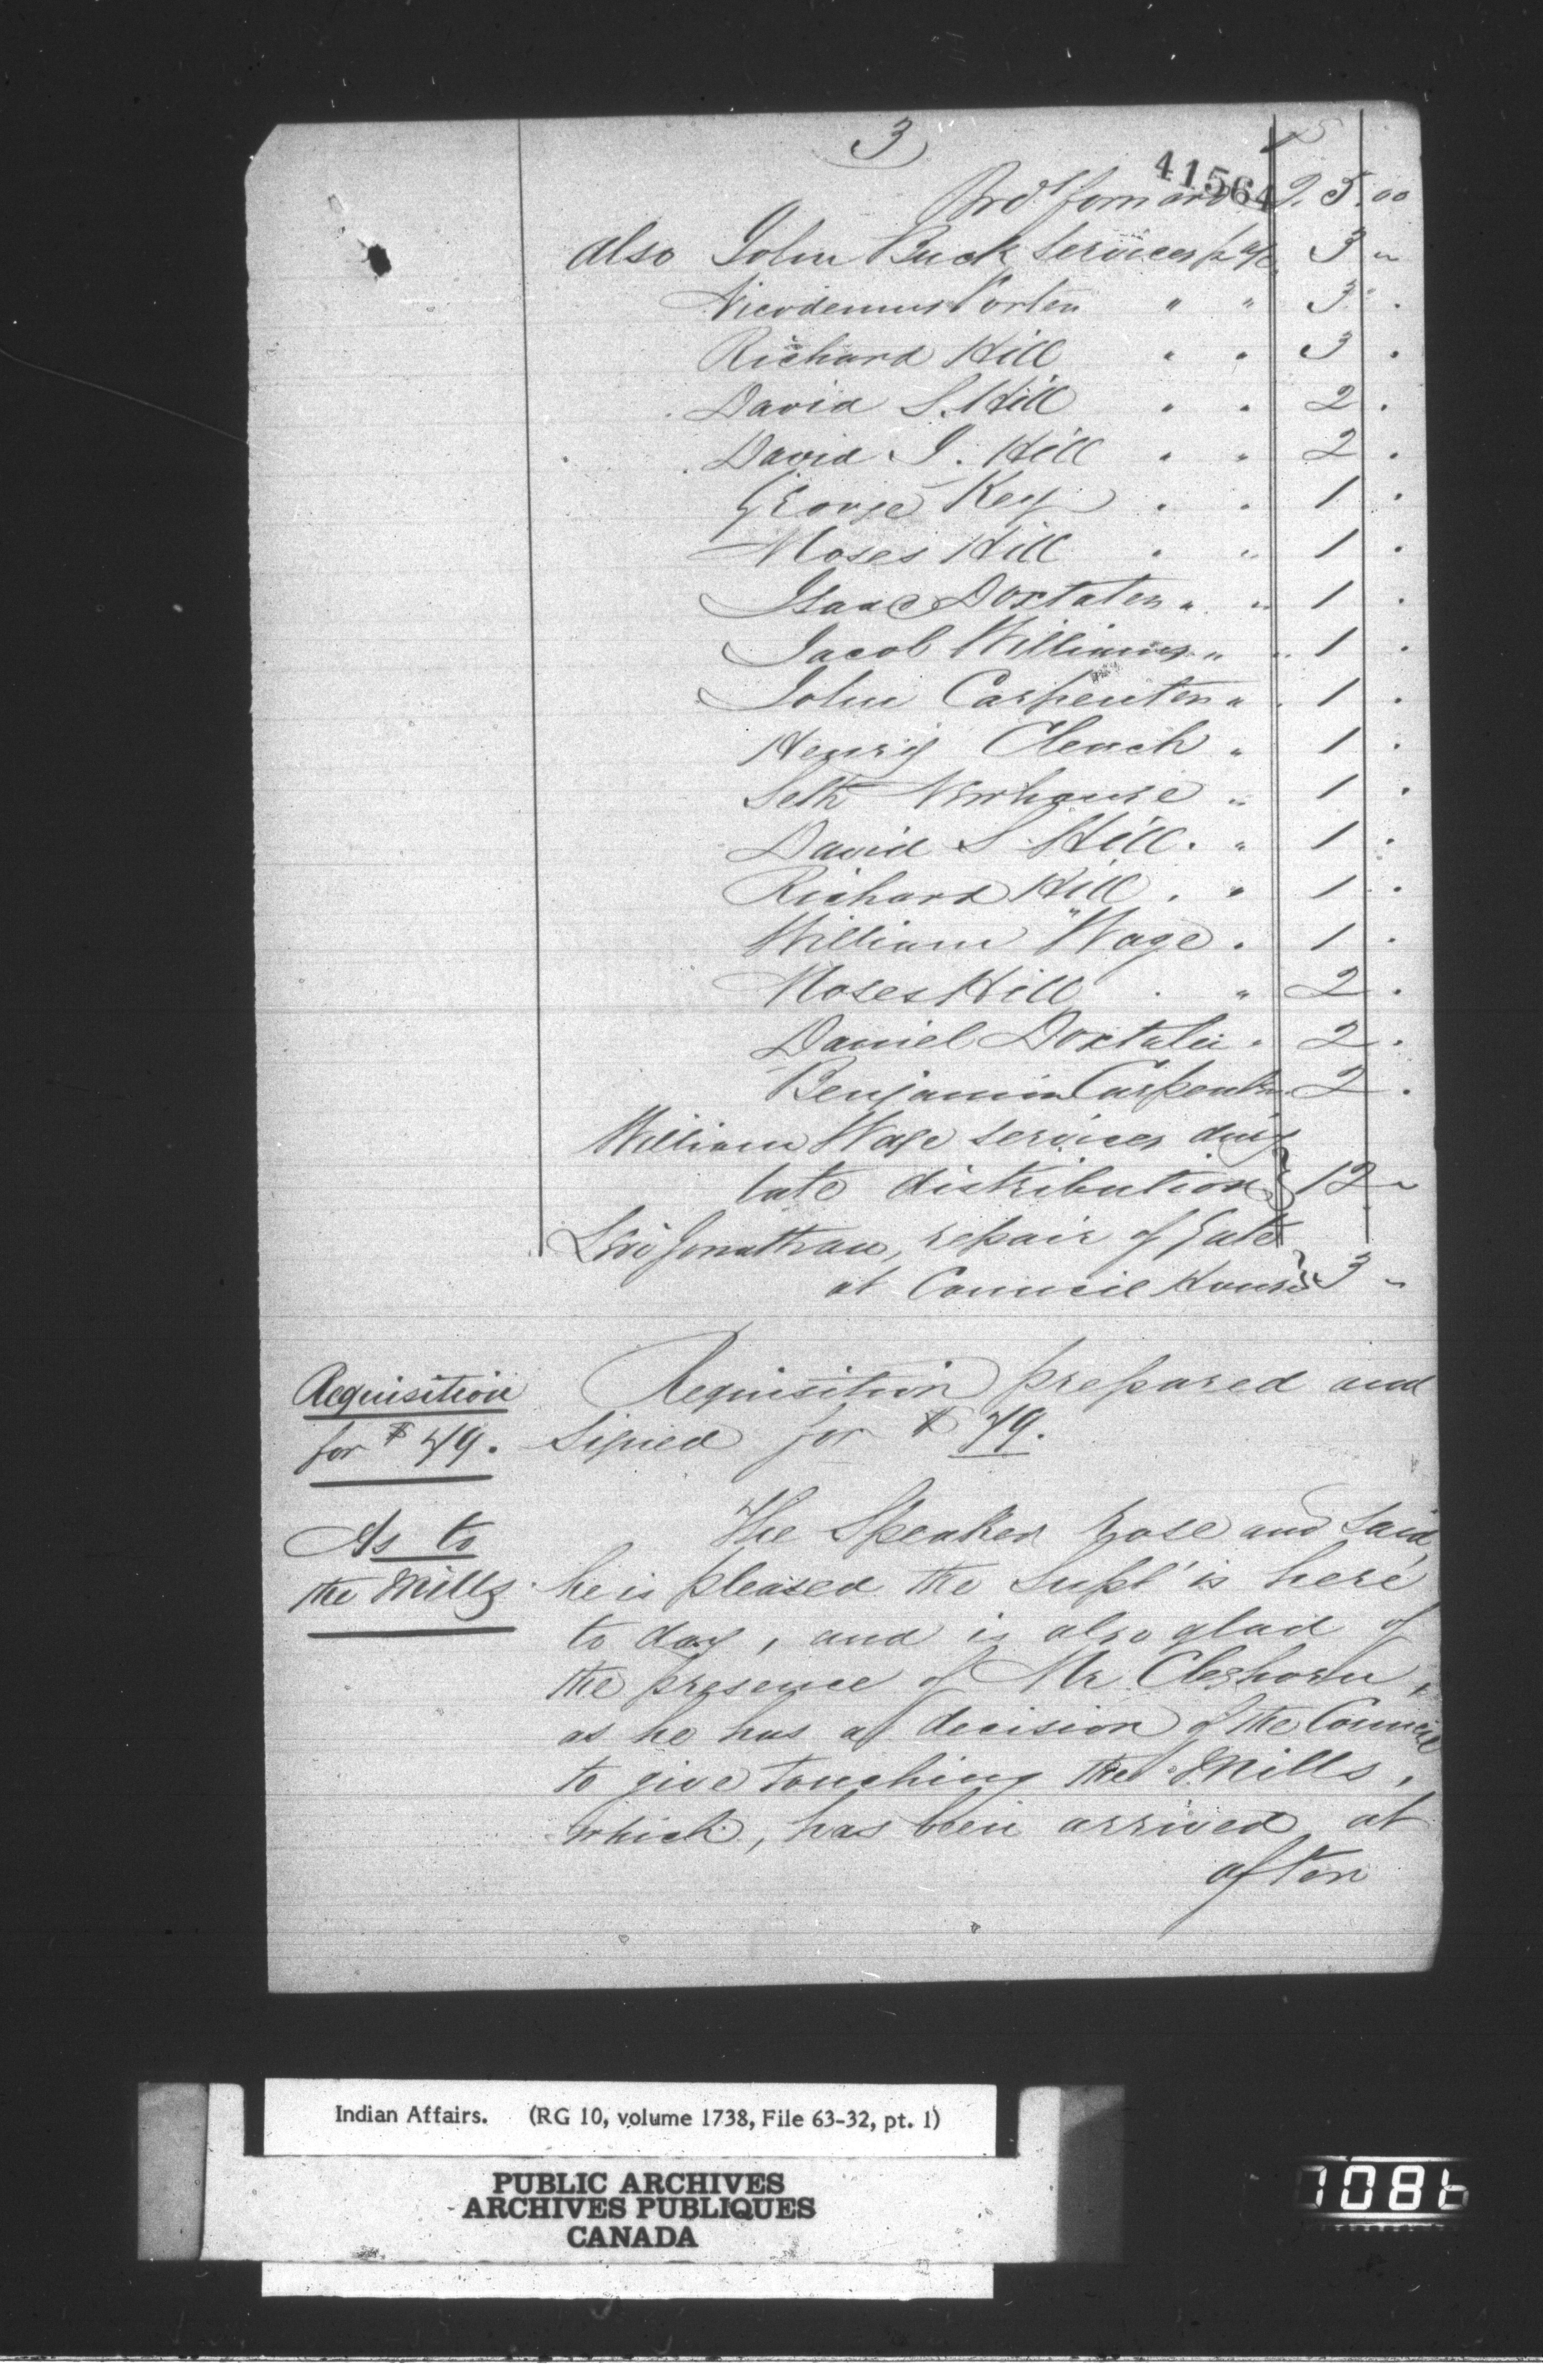 3
41564
Brd forward 25.00
also John Buck services p a/c 3 "
Nicodemus Porter " " 3 .
Richard Hill " " 3 .
David S. Hill " " 2 .
David J. Hill " " 2 .
George Key " " 1 .
Moses Hill " " 1 .
Isaac Doxtater " " 1 .
Jacob Williams " " 1 .
John Carpenter " . 1 .
Henry Clench " 1 .
Seth Newhouse " 1 .
David S Hill . " 1 .
Richard Hill . " 1 .
William Wage . 1 .
Moses Hill . " 2 .
Daniel Doxtater . 2 .
Benjamin Carpenter 2 .
William Wage services dur'g
late distribution } 12 "
Levi Jonathan, repair of Gate
at Council House } 3 "
Requisition
for $79.
Requisition prepared and
signed for $79.
As to
the Mills
The Speaker rose and said
he is pleased the Supt is here
to day, and is also glad of
the presence of Mr. Cleghorn,
as he has a decision of the Council
to give touching the Mills,
which, has been arrived at
after
Indian Affairs. (RG 10, volume 1738, File 63-32, pt. 1)
PUBLIC ARCHIVES
ARCHIVES PUBLIQUES
CANADA